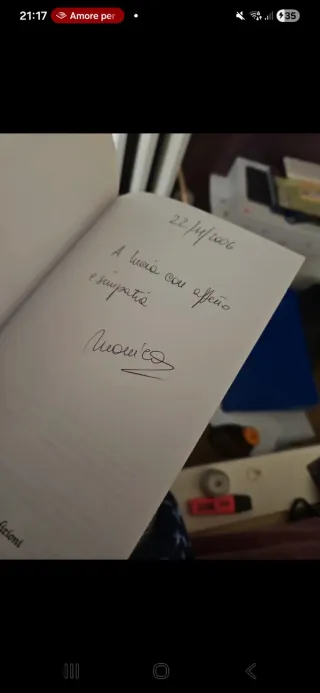 21:17 Amore per 35
22/11/2006
A Lucia con affetto
e simpatia
Monica
dizioni